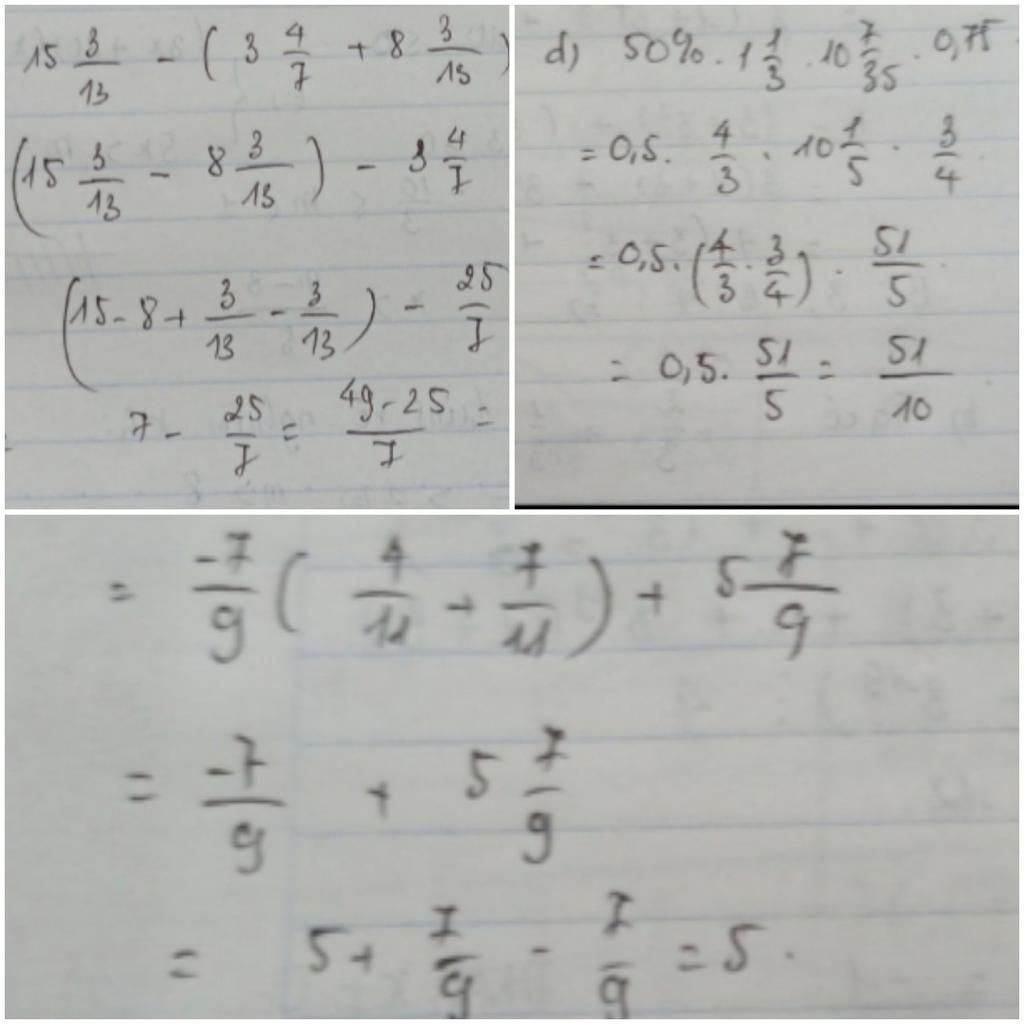 15 3/13 - ( 3 4/7 + 8 3/13 )
(15 3/13 - 8 3/13 ) - 3 4/7
(15 - 8 + 3/13 - 3/13 ) - 25/7
= 7 - 25/7 = 49 - 25/7 =
d) 50% . 1 1/3 . 10 7/35 . 0,75
= 0,5 . 4/3 . 10 1/5 . 3/4 .
= 0,5 . (4/3 . 3/4) . 51/5 .
= 0,5 . 51/5 = 51/10 .
= -7/9 ( 4/11 + 7/11 ) + 5 7/9
= -7/9 + 5 7/9
= 5 + 7/9 - 7/9 = 5 .